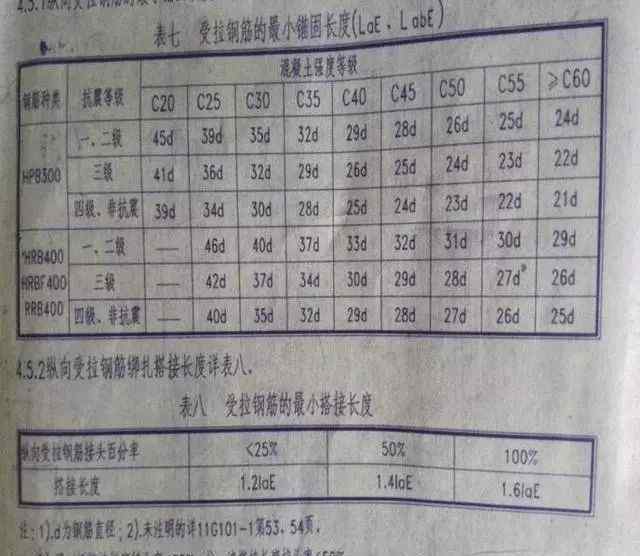 4.5.1纵向受拉钢筋的最小锚固
表七 受拉钢筋的最小锚固长度(LaE、LabE)
钢筋种类 抗震等级 混凝土强度等级
C20 C25 C30 C35 C40 C45 C50 C55 ≥C60
HPB300 一、二级 45d 39d 35d 32d 29d 28d 26d 25d 24d
三级 41d 36d 32d 29d 26d 25d 24d 23d 22d
四级、非抗震 39d 34d 30d 28d 25d 24d 23d 22d 21d
HRB400 一、二级 — 46d 40d 37d 33d 32d 31d 30d 29d
HRBF400 三级 — 42d 37d 34d 30d 29d 28d 27d 26d
RRB400 四级、非抗震 — 40d 35d 32d 29d 28d 27d 26d 25d
4.5.2纵向受拉钢筋绑扎搭接长度详表八.
表八 受拉钢筋的最小搭接长度
纵向受拉钢筋接头百分率 <25% 50% 100%
搭接长度 1.2laE 1.4laE 1.6laE
注:1).d为钢筋直径;2).未注明的详11G101-1第53、54页.